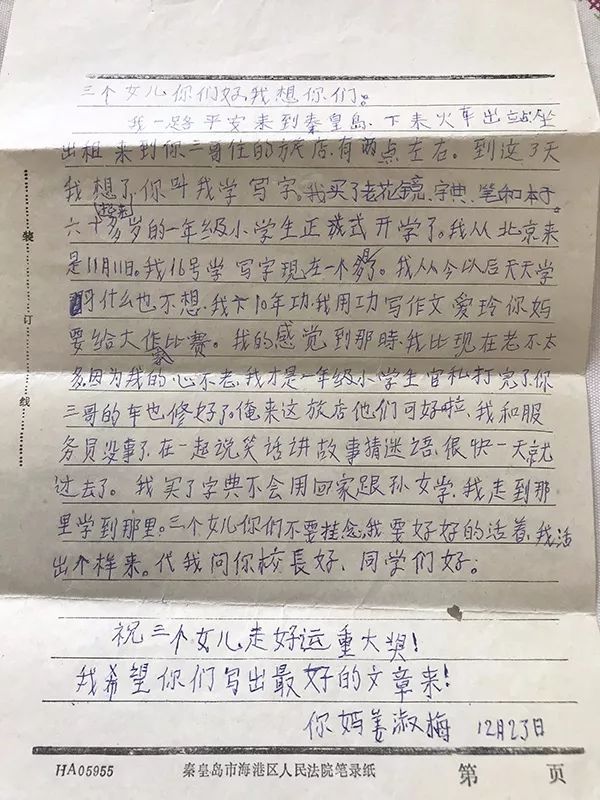 三个女儿你们好,我想你们。
我一路平安来到秦皇岛、下来火车出站坐
出租来到你三哥住的旅店,有两点左右。到这了天
我想了,你叫我学写字。我买了老花镜、字典、笔和本子。
六十多岁的一年级小学生正式开学了。我从北京来
是11月11日。我16号学写字现在一个多了。我从今以后天天学
习什么也不想,我下10年功,我用功写作文爱玲你妈
要给大作家比赛。我的感觉到那時,我比现在老不太
多,因为我的心不老,我才是一年级小学生官私打完了你
三哥的车也修好了。俺来这旅店他们可好啦、我和服
务员没事了,在一起说笑话讲故事猜迷语,很快一天就
过去了。我买了字典不会用回家跟孙女学,我走到那
里学到那里。三个女儿你们不要挂念,我要好好的活着,我活
出个样来。代我问你校長好、同学们好。
祝三个女儿走好运重大奖!
我希望你们写出最好的文章来!
你妈姜淑梅 12月23日
装
订
线
HA05955 秦皇岛市海港区人民法院笔录纸 第 页